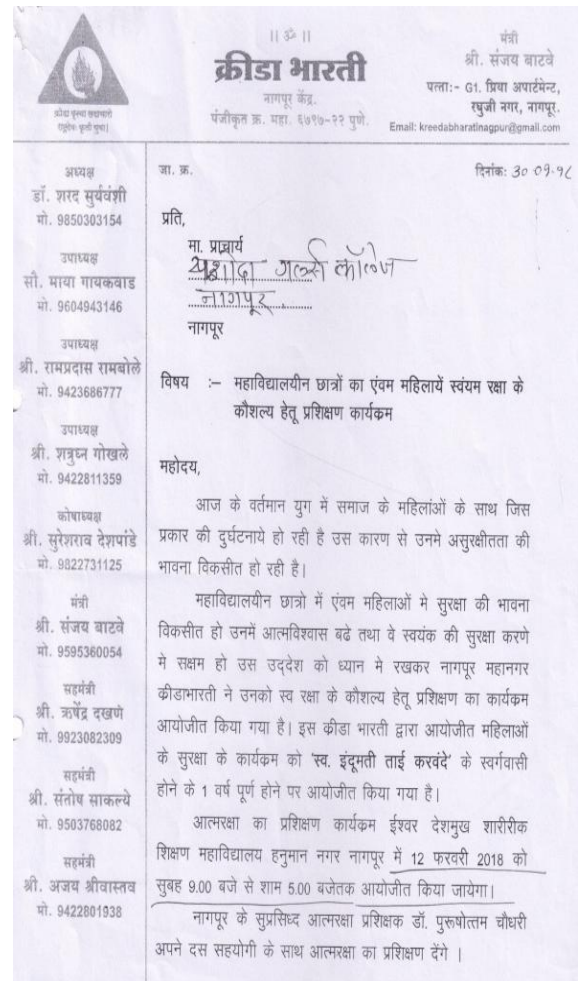 || ॐ ||
क्रीडा भारती
नागपूर केंद्र.
पंजीकृत क्र. महा. ६७९७-२२ पुणे.
मंत्री
श्री. संजय बाटवे
पत्ता:- G1. प्रिया अपार्टमेन्ट,
रघुजी नगर, नागपूर.
Email: kreedabharatinagpur@gmail.com
अध्यक्ष
डॉ. शरद सुर्यवंशी
मो. 9850303154
उपाध्यक्ष
सौ. माया गायकवाड
मो. 9604943146
उपाध्यक्ष
श्री. रामप्रदास रामबोले
मो. 9423686777
उपाध्यक्ष
श्री. शत्रुघ्न गोखले
मो. 9422811359
कोषाध्यक्ष
श्री. सुरेशराव देशपांडे
मो. 9822731125
मंत्री
श्री. संजय बाटवे
मो. 9595360054
सहमंत्री
श्री. ऋषेंद्र दखणे
मो. 9923082309
सहमंत्री
श्री. संतोष साकल्ये
मो. 9503768082
सहमंत्री
श्री. अजय श्रीवास्तव
मो. 9422801938
जा. क्र.
दिनांक: 30-09-१८
प्रति,
मा. प्राचार्य
यशोदा गर्ल्स कॉलेज
नागपूर
नागपूर
विषय :– महाविद्यालयीन छात्रों का एंवम महिलायें स्वंयम रक्षा के
कौशल्य हेतू प्रशिक्षण कार्यकम
महोदय,
आज के वर्तमान युग में समाज के महिलांओं के साथ जिस
प्रकार की दुर्घटनाये हो रही है उस कारण से उनमे असुरक्षीतता की
भावना विकसीत हो रही है।
महाविद्यालयीन छात्रो में एंवम महिलाओं मे सुरक्षा की भावना
विकसीत हो उनमें आत्मविश्वास बढे तथा वे स्वयंक की सुरक्षा करणे
मे सक्षम हो उस उद्देश को ध्यान मे रखकर नागपूर महानगर
कीडाभारती ने उनको स्व रक्षा के कौशल्य हेतु प्रशिक्षण का कार्यकम
आयोजीत किया गया है। इस कीडा भारती द्वारा आयोजीत महिलाओं
के सुरक्षा के कार्यकम को 'स्व. इंदूमती ताई करवंदे' के स्वर्गवासी
होने के 1 वर्ष पूर्ण होने पर आयोजीत किया गया है।
आत्मरक्षा का प्रशिक्षण कार्यकम ईश्वर देशमुख शारीरीक
शिक्षण महाविद्यालय हनुमान नगर नागपूर में 12 फरवरी 2018 को
सुबह 9.00 बजे से शाम 5.00 बजेतक आयोजीत किया जायेगा।
नागपूर के सुप्रसिध्द आत्मरक्षा प्रशिक्षक डॉ. पुरूषोत्तम चौधरी
अपने दस सहयोगी के साथ आत्मरक्षा का प्रशिक्षण देंगे ।